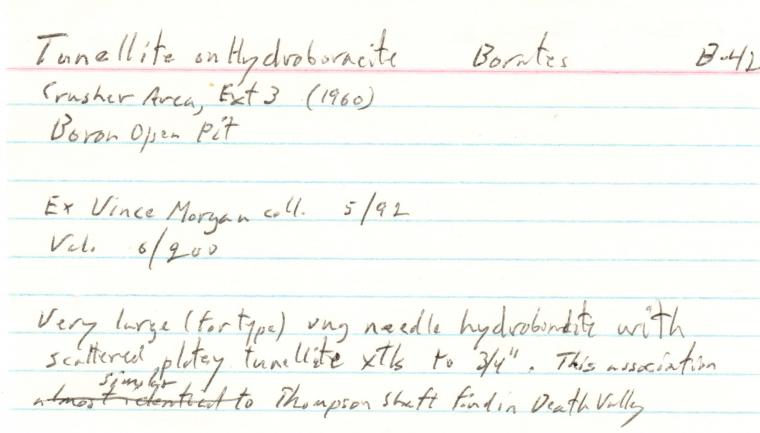 Tunellite on Hydroboracite Borates B-42
Crusher Area, Ext 3 (1960)
Boron Open Pit
Ex Vince Morgan coll. 5/92
Val. 6/200
Very large (for type) vug needle hydroboracite with
scattered platey tunellite xtls to 3/4". This association
similar
almost identical to Thompson Shaft find in Death Valley